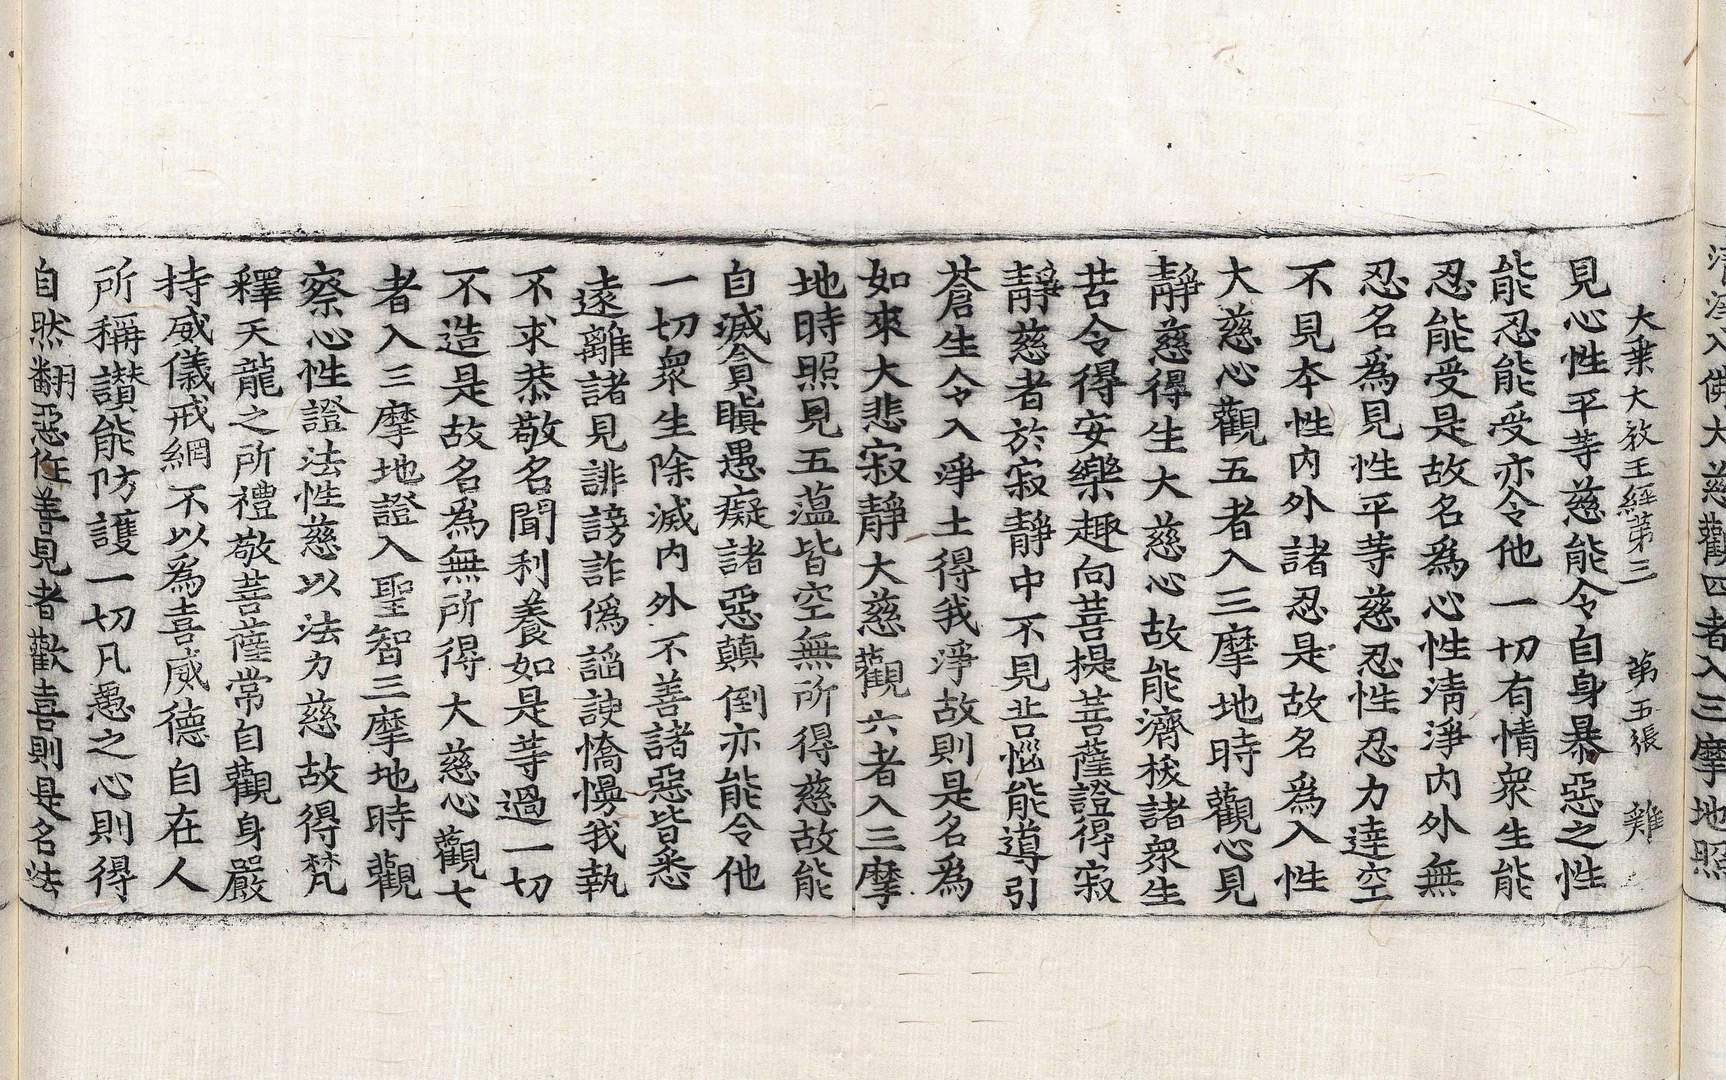 清淨入佛大慈觀四者入三摩地照
大乗大教王經第三　第五張　難
見心性平等慈能令自身暴惡之性
能忍能受亦令他一切有情衆生能
忍能受是故名爲心性清淨內外無
忍名爲見性平等慈忍性忍力達空
不見本性內外諸忍是故名爲入性
大慈心觀五者入三摩地時觀心見
靜慈得生大慈心故能濟拔諸衆生
苦令得安樂趣向菩提菩薩證得寂
靜慈者於寂靜中不見苦惱能導引
蒼生令入淨土得我淨故則是名爲
如來大悲寂靜大慈觀六者入三摩
地時照見五蕰皆空無所得慈故能
自滅貪瞋愚癡諸惡顛倒亦能令他
一切衆生除滅內外不善諸惡皆悉
遠離諸見誹謗詐僞謟諛憍慢我執
不求恭敬名聞利養如是等過一切
不造是故名爲無所得大慈心觀七
者入三摩地證入聖智三摩地時觀
察心性證法性慈以法力慈故得梵
釋天龍之所禮敬菩薩常自觀身嚴
持威儀戒網不以爲喜威德自在人
所稱讃能防護一切凡愚之心則得
自然翻惡作善見者歡喜則是名法